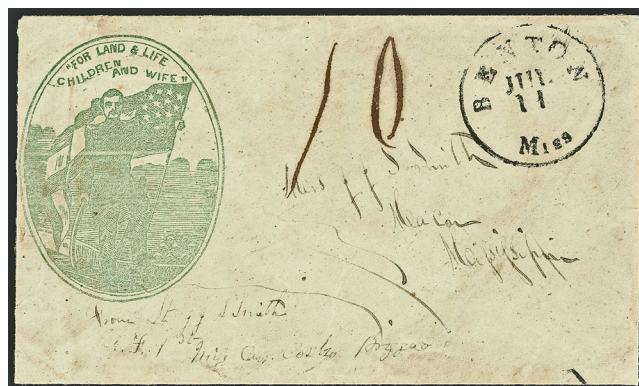 "FOR LAND & LIFE
CHILDREN AND WIFE"
10
BENTON
JUL
11
Miss
J J Smith
Macon
Mississippi
from Lt J J Smith
1st Miss Cav